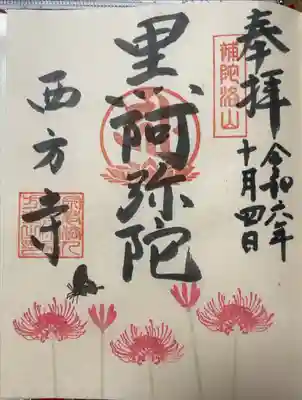 奉拝
補陀洛山
令和六年
十月四日
黒阿弥陀
西方寺